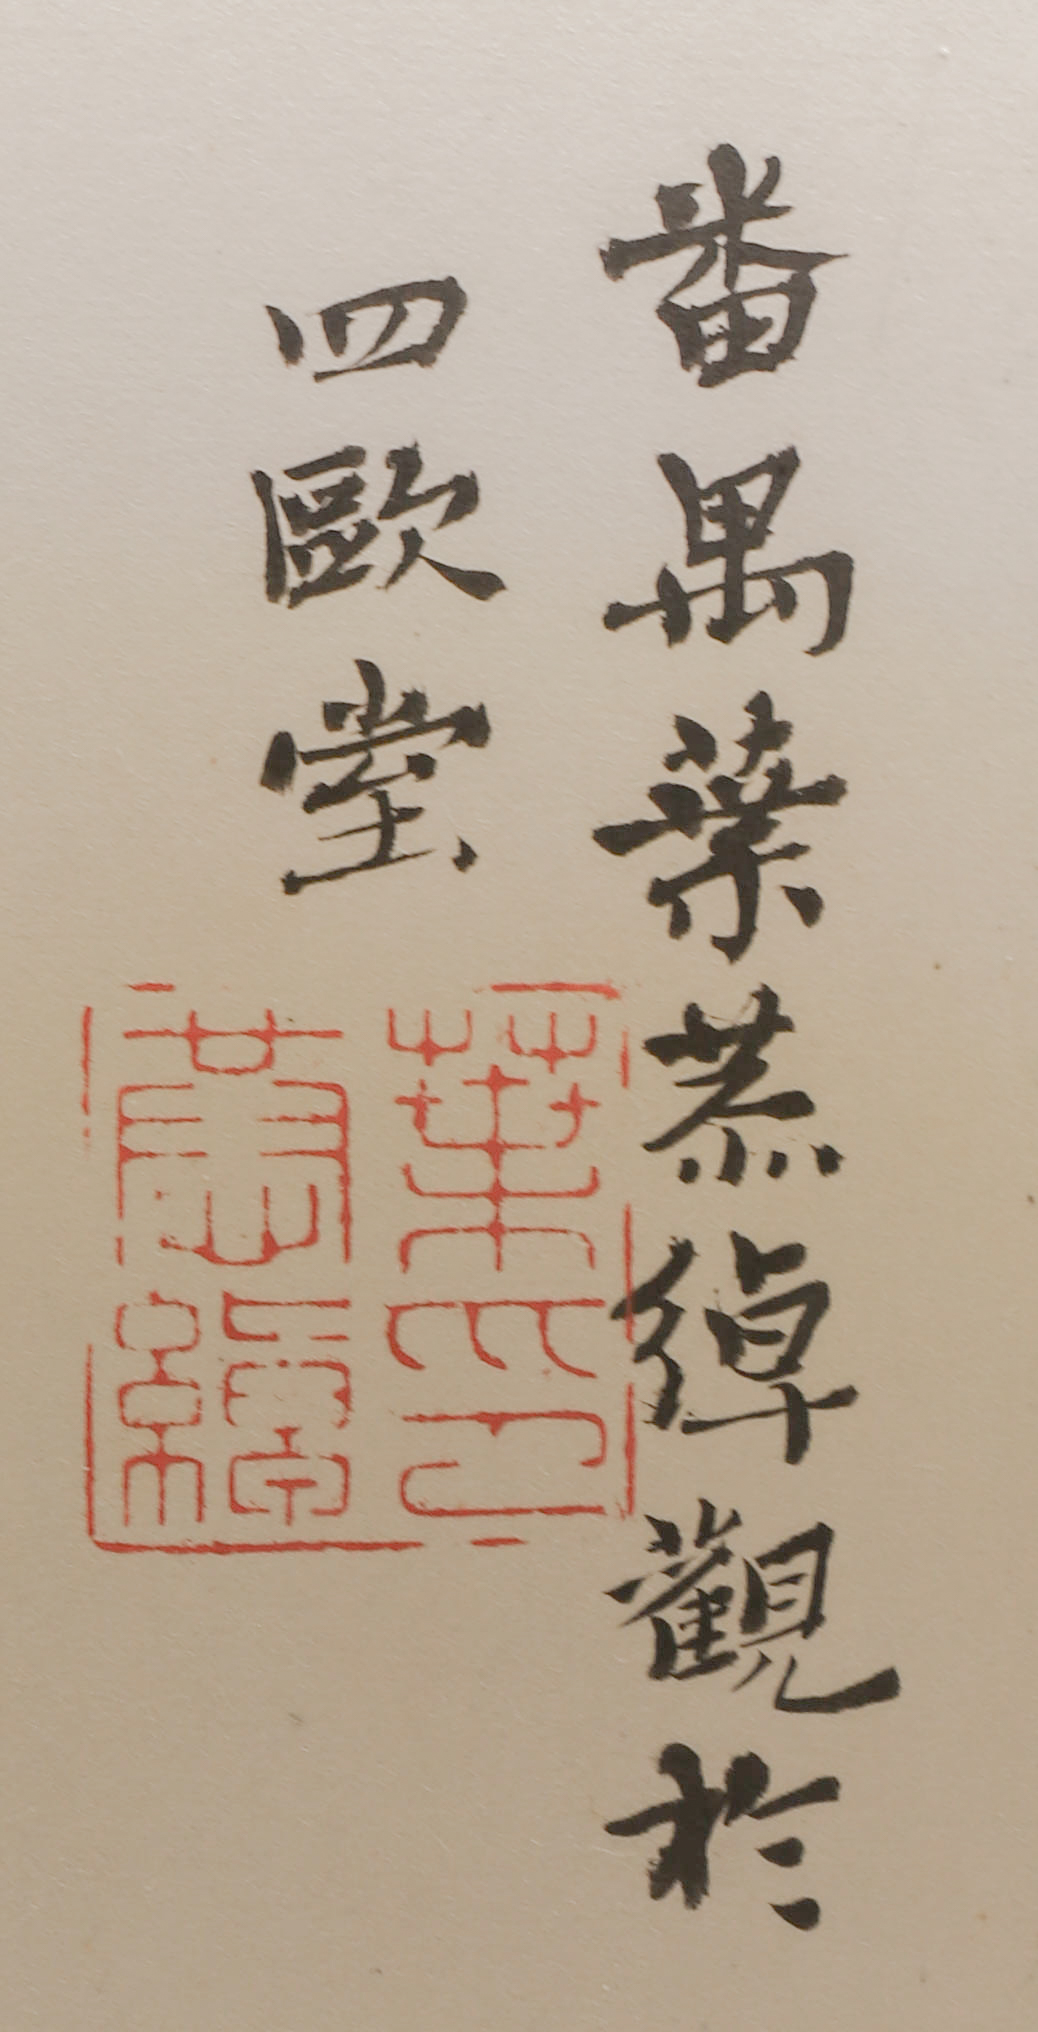 番禺葉恭綽觀於
四歐堂
葉印
恭綽